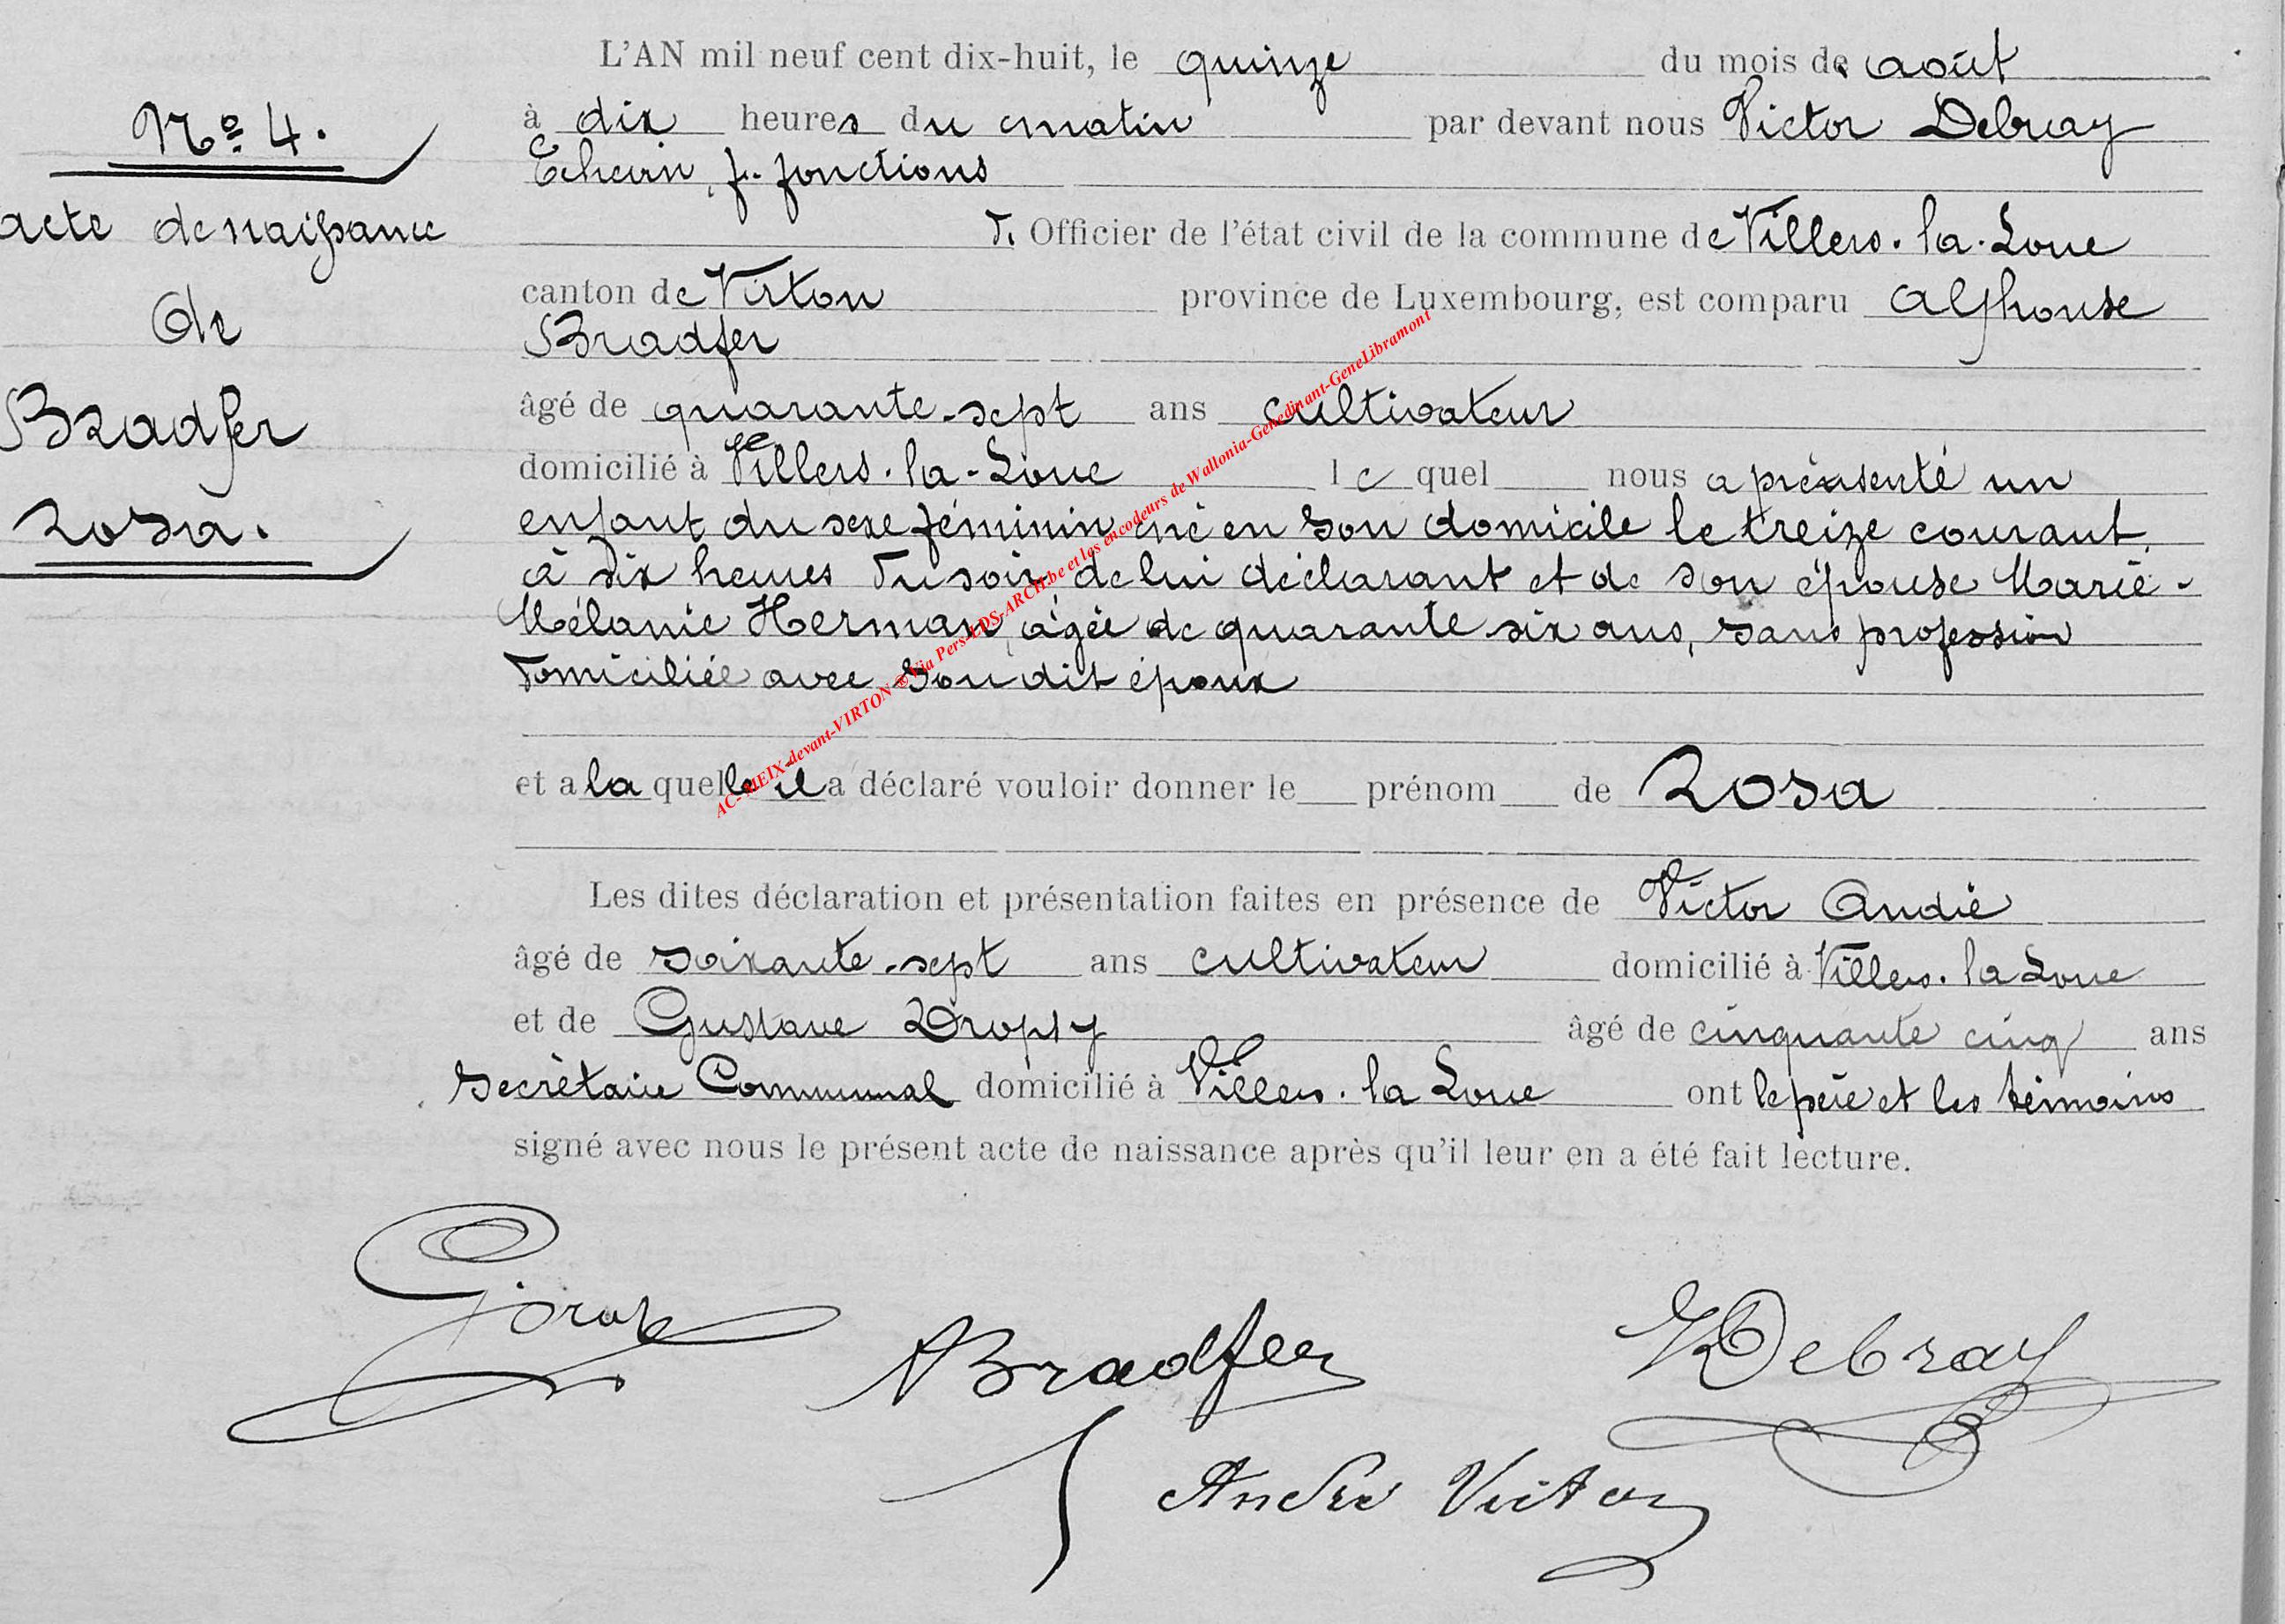 L'AN mil neuf cent dix-huit, le quinze du mois de août
No 4.
à dix heures du matin par devant nous Victor Debray
Echevin, f. fonctions
acte de naissance
d'Officier de l'état civil de la commune de Villers-la-Loue
de
canton de Virton province de Luxembourg, est comparu Alphonse
Bradfer
Bradfer
âgé de quarante-sept ans cultivateur
domicilié à Villers-la-Loue lequel nous a présenté un
Rosa.
enfant du sexe féminin né en son domicile le treize courant,
à dix heures du soir, de lui déclarant et de son épouse Marie-
Mélanie Herman, âgée de quarante six ans, sans profession
domiciliée avec son dit époux
et a laquelle il a déclaré vouloir donner le prénom de Rosa
Les dites déclaration et présentation faites en présence de Victor André
âgé de soixante-sept ans cultivateur domicilié à Villers-la Loue
et de Gustave Dropsy âgé de cinquante cinq ans
Secrétaire Communal domicilié à Villers-la Loue ont le père et les témoins
signé avec nous le présent acte de naissance après qu'il leur en a été fait lecture.
ABradfer
VDebray
André Victor
AC-MEIX-devant-VIRTON ® Via Pers-LDS-ARCH.be et les encodeurs de Wallonia-Genedinant-GeneLibramont